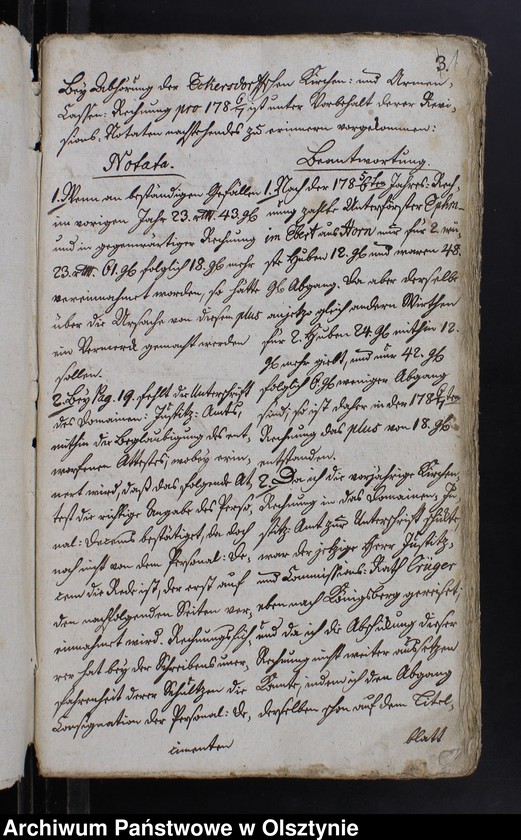 3.
Bey Abhörung der Eckersdorffschen Kirchen- und Armen-
Cassen-Rechnung pro 178 6/7 ist unter Vorbehalt derer Revi-
sions-Notaten nachstehendes zu erinnern vorgekommen:
Notata.
1. Wenn an beständigen Gefällen
im vorigen Jahr 23. rtl. 43. gl.
und in gegenwärtiger Rechnung
23. rtl. 61. gl. folglich 18. gl. mehr
vereinnahmet worden, so hätte
über die Ursache von diesem plus
ein Vermerk gemacht werden
sollen.
2. Bey Pag. 19. fehlt die Unterschrift
des Domainen-Justitz-Amts,
mithin die Beglaubigung des ent-
worfenen Attestes, wobey erin-
nert wird, daß das folgende At-
test die richtige Angabe des Perso-
nal-Decems bestätiget, da doch
noch nicht von dem Personal-De-
cem die Rede ist, der erst auf
den nachfolgenden Seiten ver-
einnahmt wird. Rechnungsfüh-
rer hat bey der Schreibens uner-
fahrenheit derer Schultzen die
Consignation der Personal-De-
cimenten
Beantwortung.
1. Nach der 178 5/6ten Jahres-Rech-
nung zahlte Unterförster
im aus Horn nur für 2. wü-
ste Huben 12. gl. und waren 48.
gl. Abgang. Da aber derselbe
anjetzo gleich andern Wirthen
für 2. Huben 24. gl. mithin 12.
gl. mehr giebt, und nur 42. gl.
folglich 6 gl. weniger Abgang
sind; so ist daher in der 178 6/7ten
Rechnung das plus von 18. gl.
entstanden.
2. Da ich die vorjährige Kirchen-
Rechnung in das Domainen-Ju-
stitz-Amt zur Unterschrift schickte
war der jetzige Herr Justitz-
und Commissions-Rath Crüger
eben nach Königsberg gereiset;
und da ich die Abschickung dieser
Rechnung nicht weiter aussetzen
konnte, indem ich den Abgang
derselben schon auf dem Titel-
blatt
Archiwum Państwowe w Olsztynie